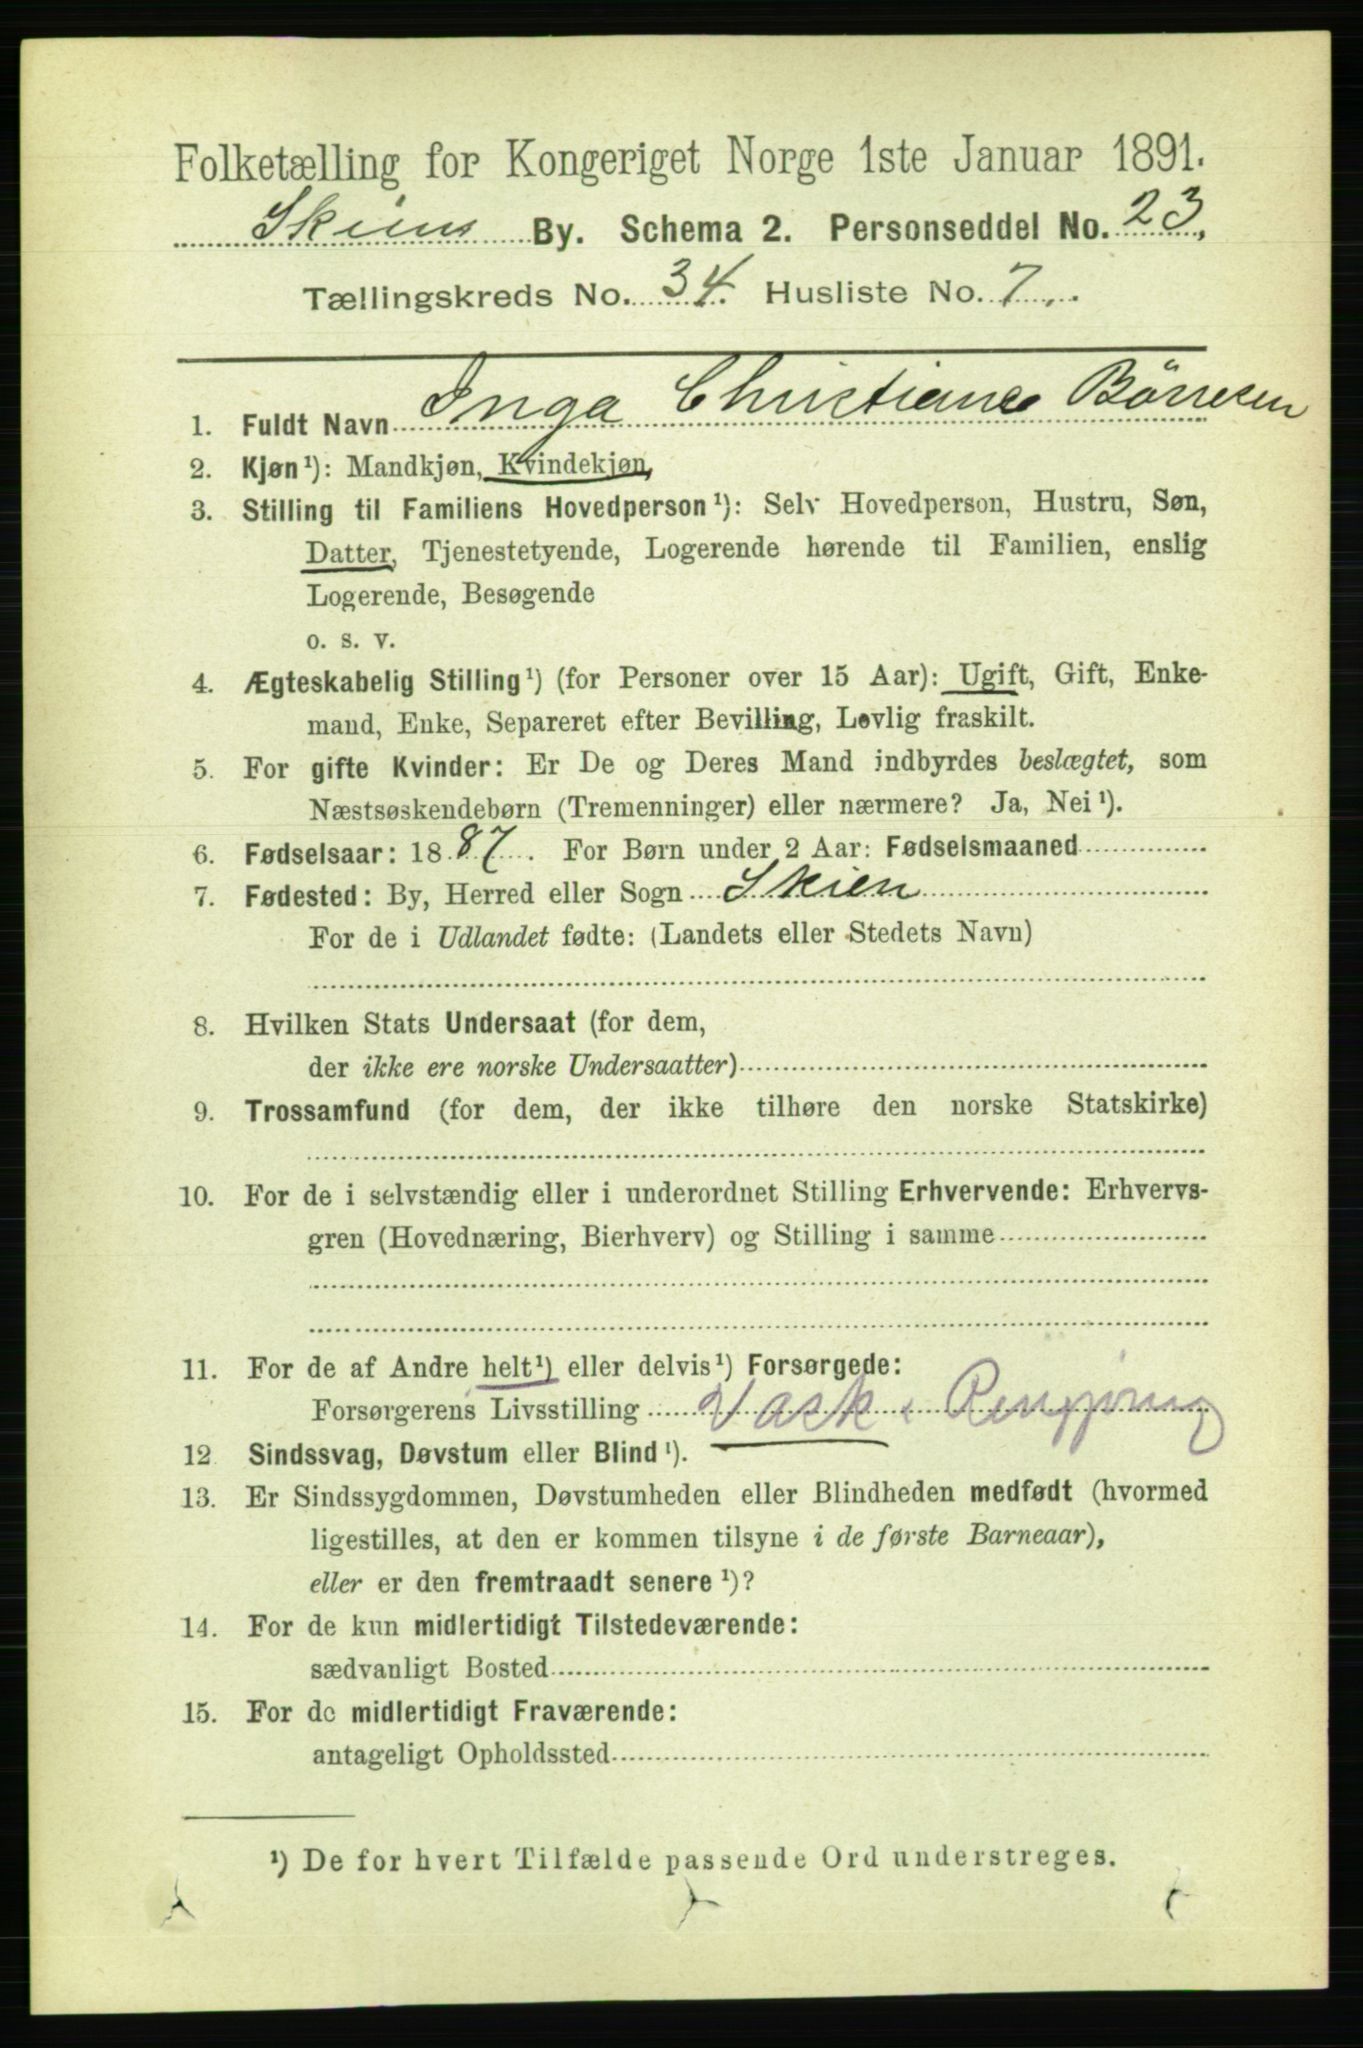 Folketælling for Kongeriget Norge 1ste Januar 1891.
Skiens By. Schema 2. Personseddel No. 23.
Tællingskreds No. 34. Husliste No. 7.
1. Fuldt Navn Inga Christiane Börresen
2. Kjøn¹): Mandkjøn, Kvindekjøn,
3. Stilling til Familiens Hovedperson¹): Selv Hovedperson, Hustru, Søn,
Datter, Tjenestetyende, Logerende hørende til Familien, enslig
Logerende, Besøgende
o. s. v.
4. Ægteskabelig Stilling¹) (for Personer over 15 Aar): Ugift, Gift, Enke-
mand, Enke, Separeret efter Bevilling, Lovlig fraskilt.
5. For gifte Kvinder: Er De og Deres Mand indbyrdes beslægtet, som
Næstsøskendebørn (Tremenninger) eller nærmere? Ja, Nei¹).
6. Fødselsaar: 1887. For Børn under 2 Aar: Fødselsmaaned
7. Fødested: By, Herred eller Sogn Skien
For de i Udlandet fødte: (Landets eller Stedets Navn)
8. Hvilken Stats Undersaat (for dem,
der ikke ere norske Undersaatter)
9. Trossamfund (for dem, der ikke tilhøre den norske Statskirke)
10. For de i selvstændig eller i underordnet Stilling Erhvervende: Erhvervs-
gren (Hovednæring, Bierhverv) og Stilling i samme
11. For de af Andre helt¹) eller delvis¹) Forsørgede:
Forsørgerens Livsstilling Vask & Rengjöring
12 Sindssvag, Døvstum eller Blind¹).
13. Er Sindssygdommen, Døvstumheden eller Blindheden medfødt (hvormed
ligestilles, at den er kommen tilsyne i de første Barneaar),
eller er den fremtraadt senere¹)?
14. For de kun midlertidigt Tilstedeværende:
sædvanligt Bosted
15. For de midlertidigt Fraværende:
antageligt Opholdssted
¹) De for hvert Tilfælde passende Ord understreges.